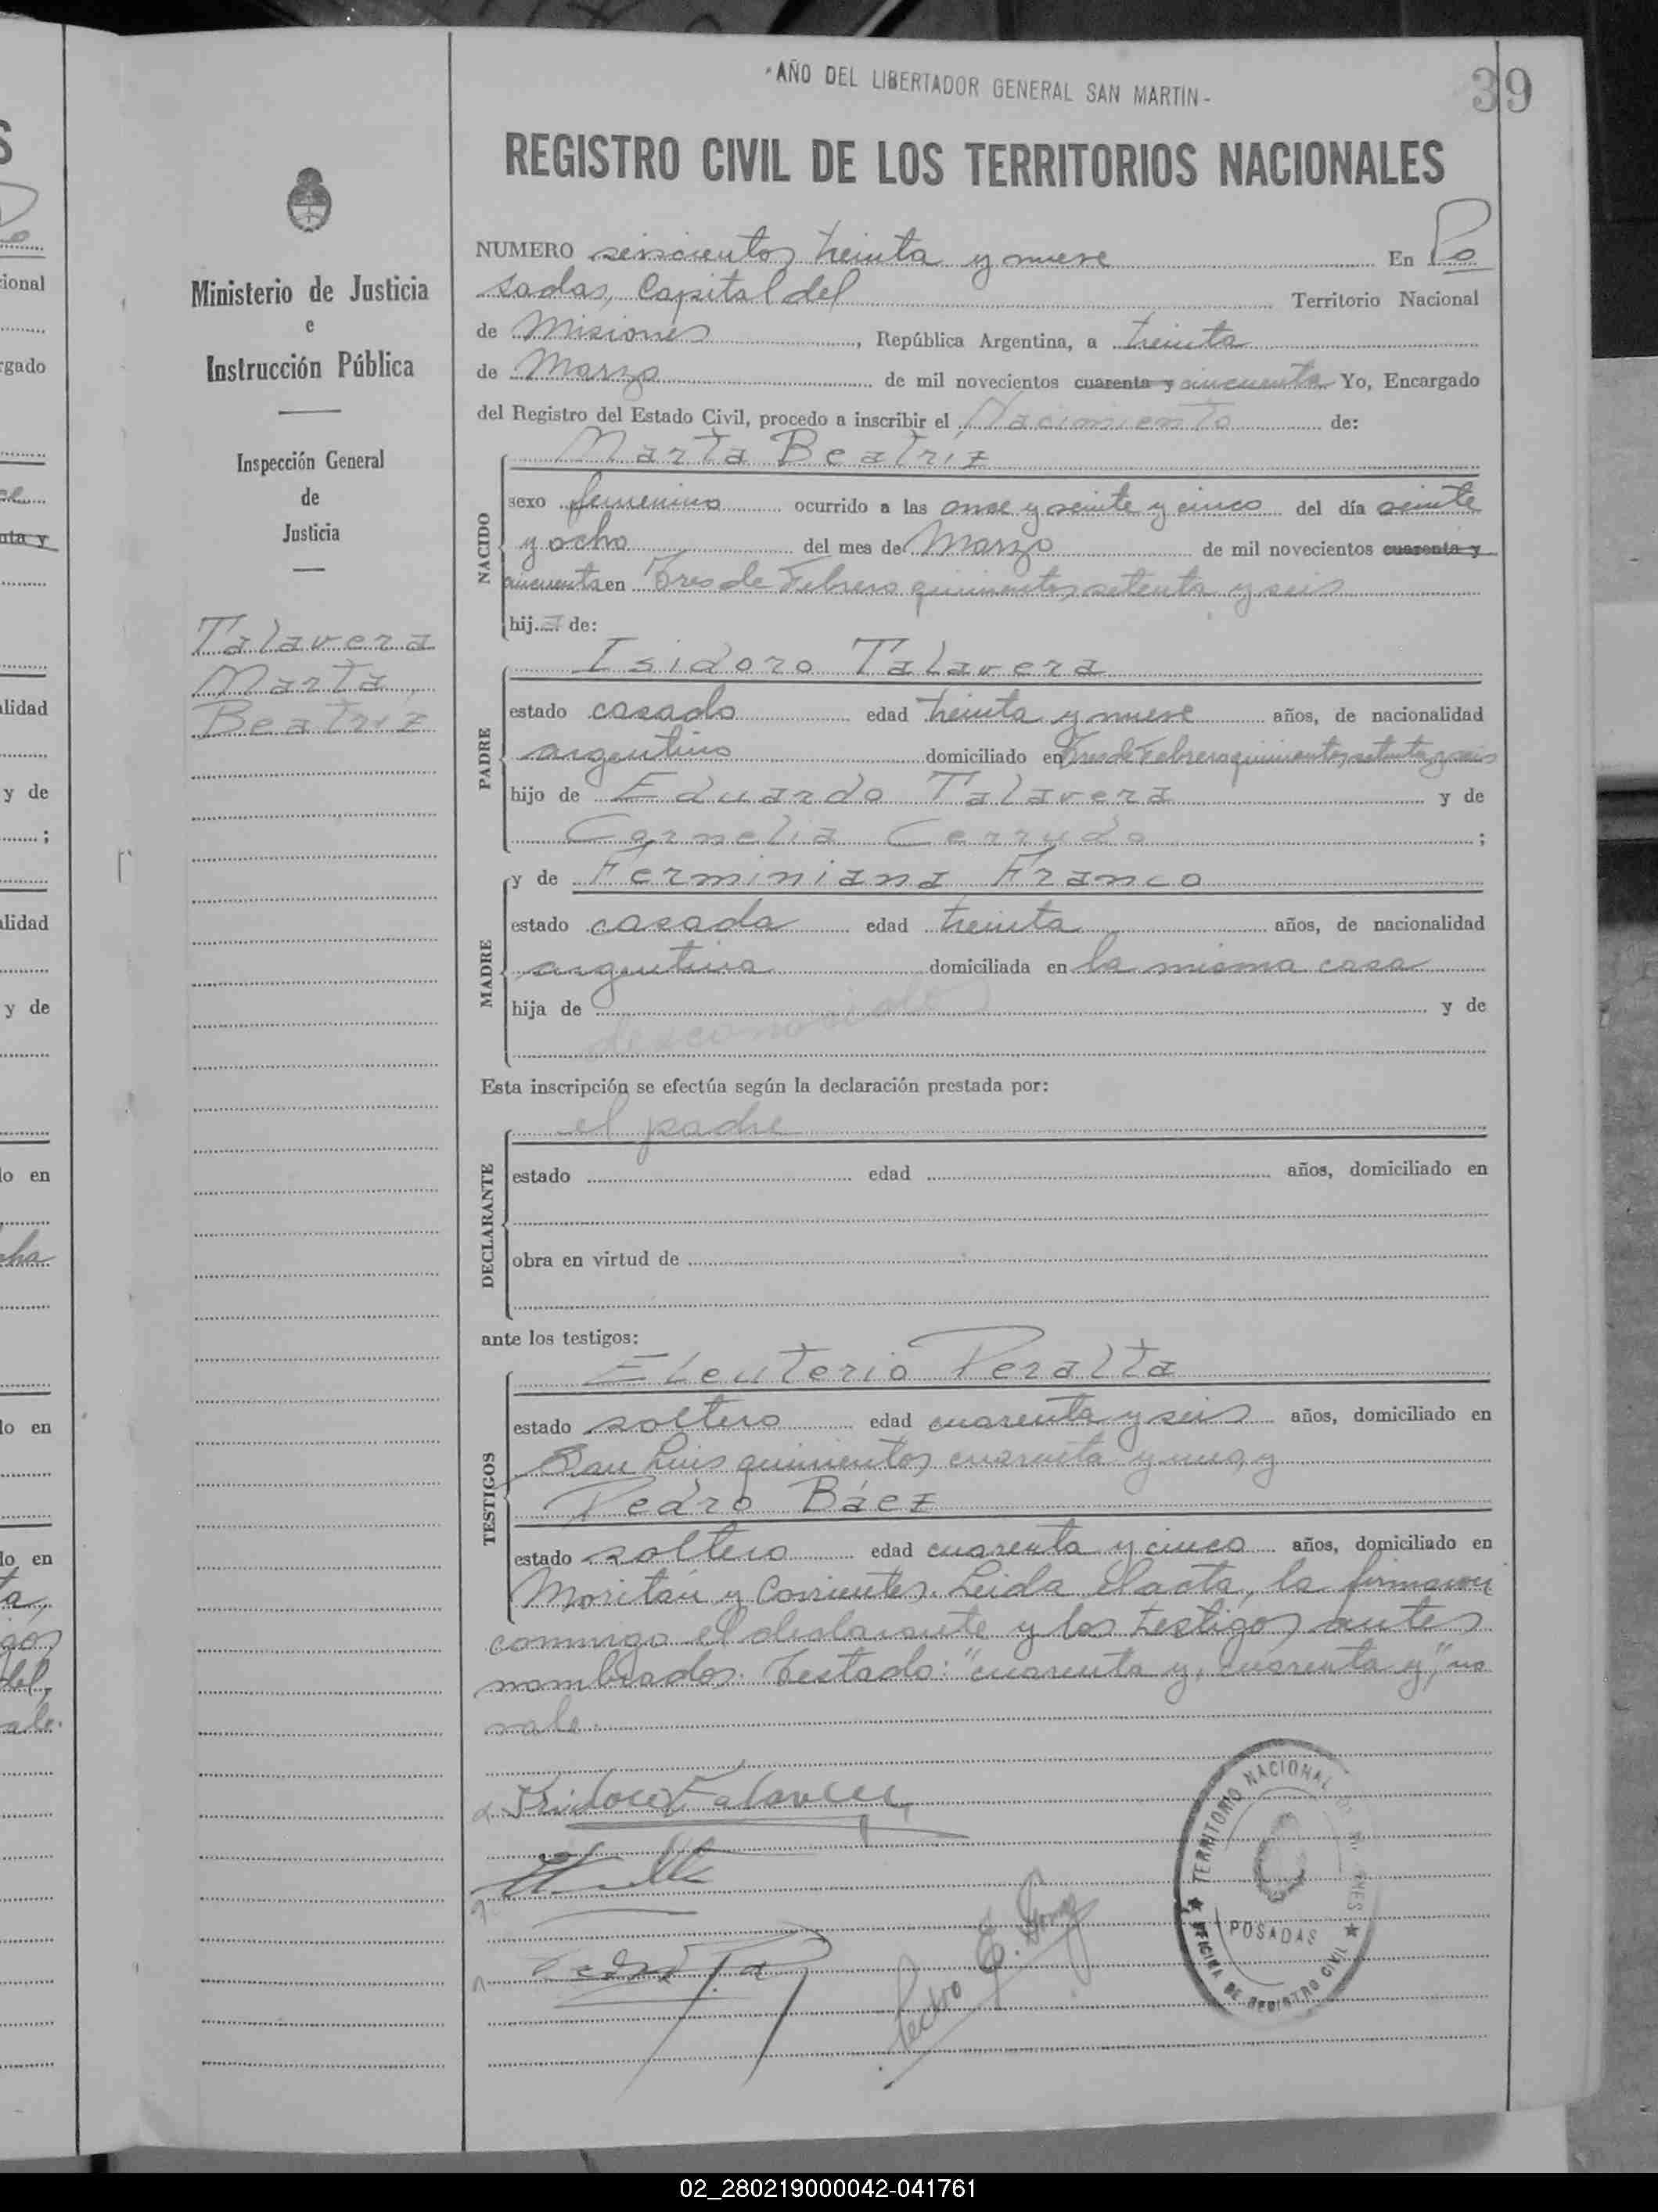 "AÑO DEL LIBERTADOR GENERAL SAN MARTIN-
39
REGISTRO CIVIL DE LOS TERRITORIOS NACIONALES
Ministerio de Justicia
e
Instrucción Pública
Inspección General
de
Justicia
Talavera
Marta
Beatriz
NUMERO seiscientos treinta y nueve En Po
sadas, Capital del Territorio Nacional
de Misiones, República Argentina, a treinta
de Marzo de mil novecientos cuarenta y cincuenta Yo, Encargado
del Registro del Estado Civil, procedo a inscribir el Nacimiento de:
NACIDO
Marta Beatriz
sexo femenino ocurrido a las once y veinte y cinco del día veinte
y ocho del mes de Marzo de mil novecientos cuarenta y
cincuenta en Tres de Febrero quinientos setenta y seis
hija de:
PADRE
Isidoro Talavera
estado casado edad treinta y nueve años, de nacionalidad
argentino domiciliado en Tres de Febrero quinientos setenta y seis
hijo de Eduardo Talavera y de
Cornelia Cerrudo ;
MADRE
y de Ferminiana Franco
estado casada edad treinta años, de nacionalidad
argentina domiciliada en la misma casa
hija de y de
desconocidos
Esta inscripción se efectúa según la declaración prestada por:
DECLARANTE
el padre
estado edad años, domiciliado en
obra en virtud de
ante los testigos:
TESTIGOS
Eleuterio Peralta
estado soltero edad cuarenta y seis años, domiciliado en
San Luis quinientos cuarenta y uno, y
Pedro Báez
estado soltero edad cuarenta y cinco años, domiciliado en
Moritán y Corrientes. Leida el acta, la firmaron
conmigo el declarante y los testigos antes
nombrados. Testado: "cuarenta y, cuarenta y", no
vale.
Isidoro Talavera
Pedro E.
TERRITORIO NACIONAL DE MISIONES
POSADAS
OFICINA DE REGISTRO CIVIL
02_280219000042-041761